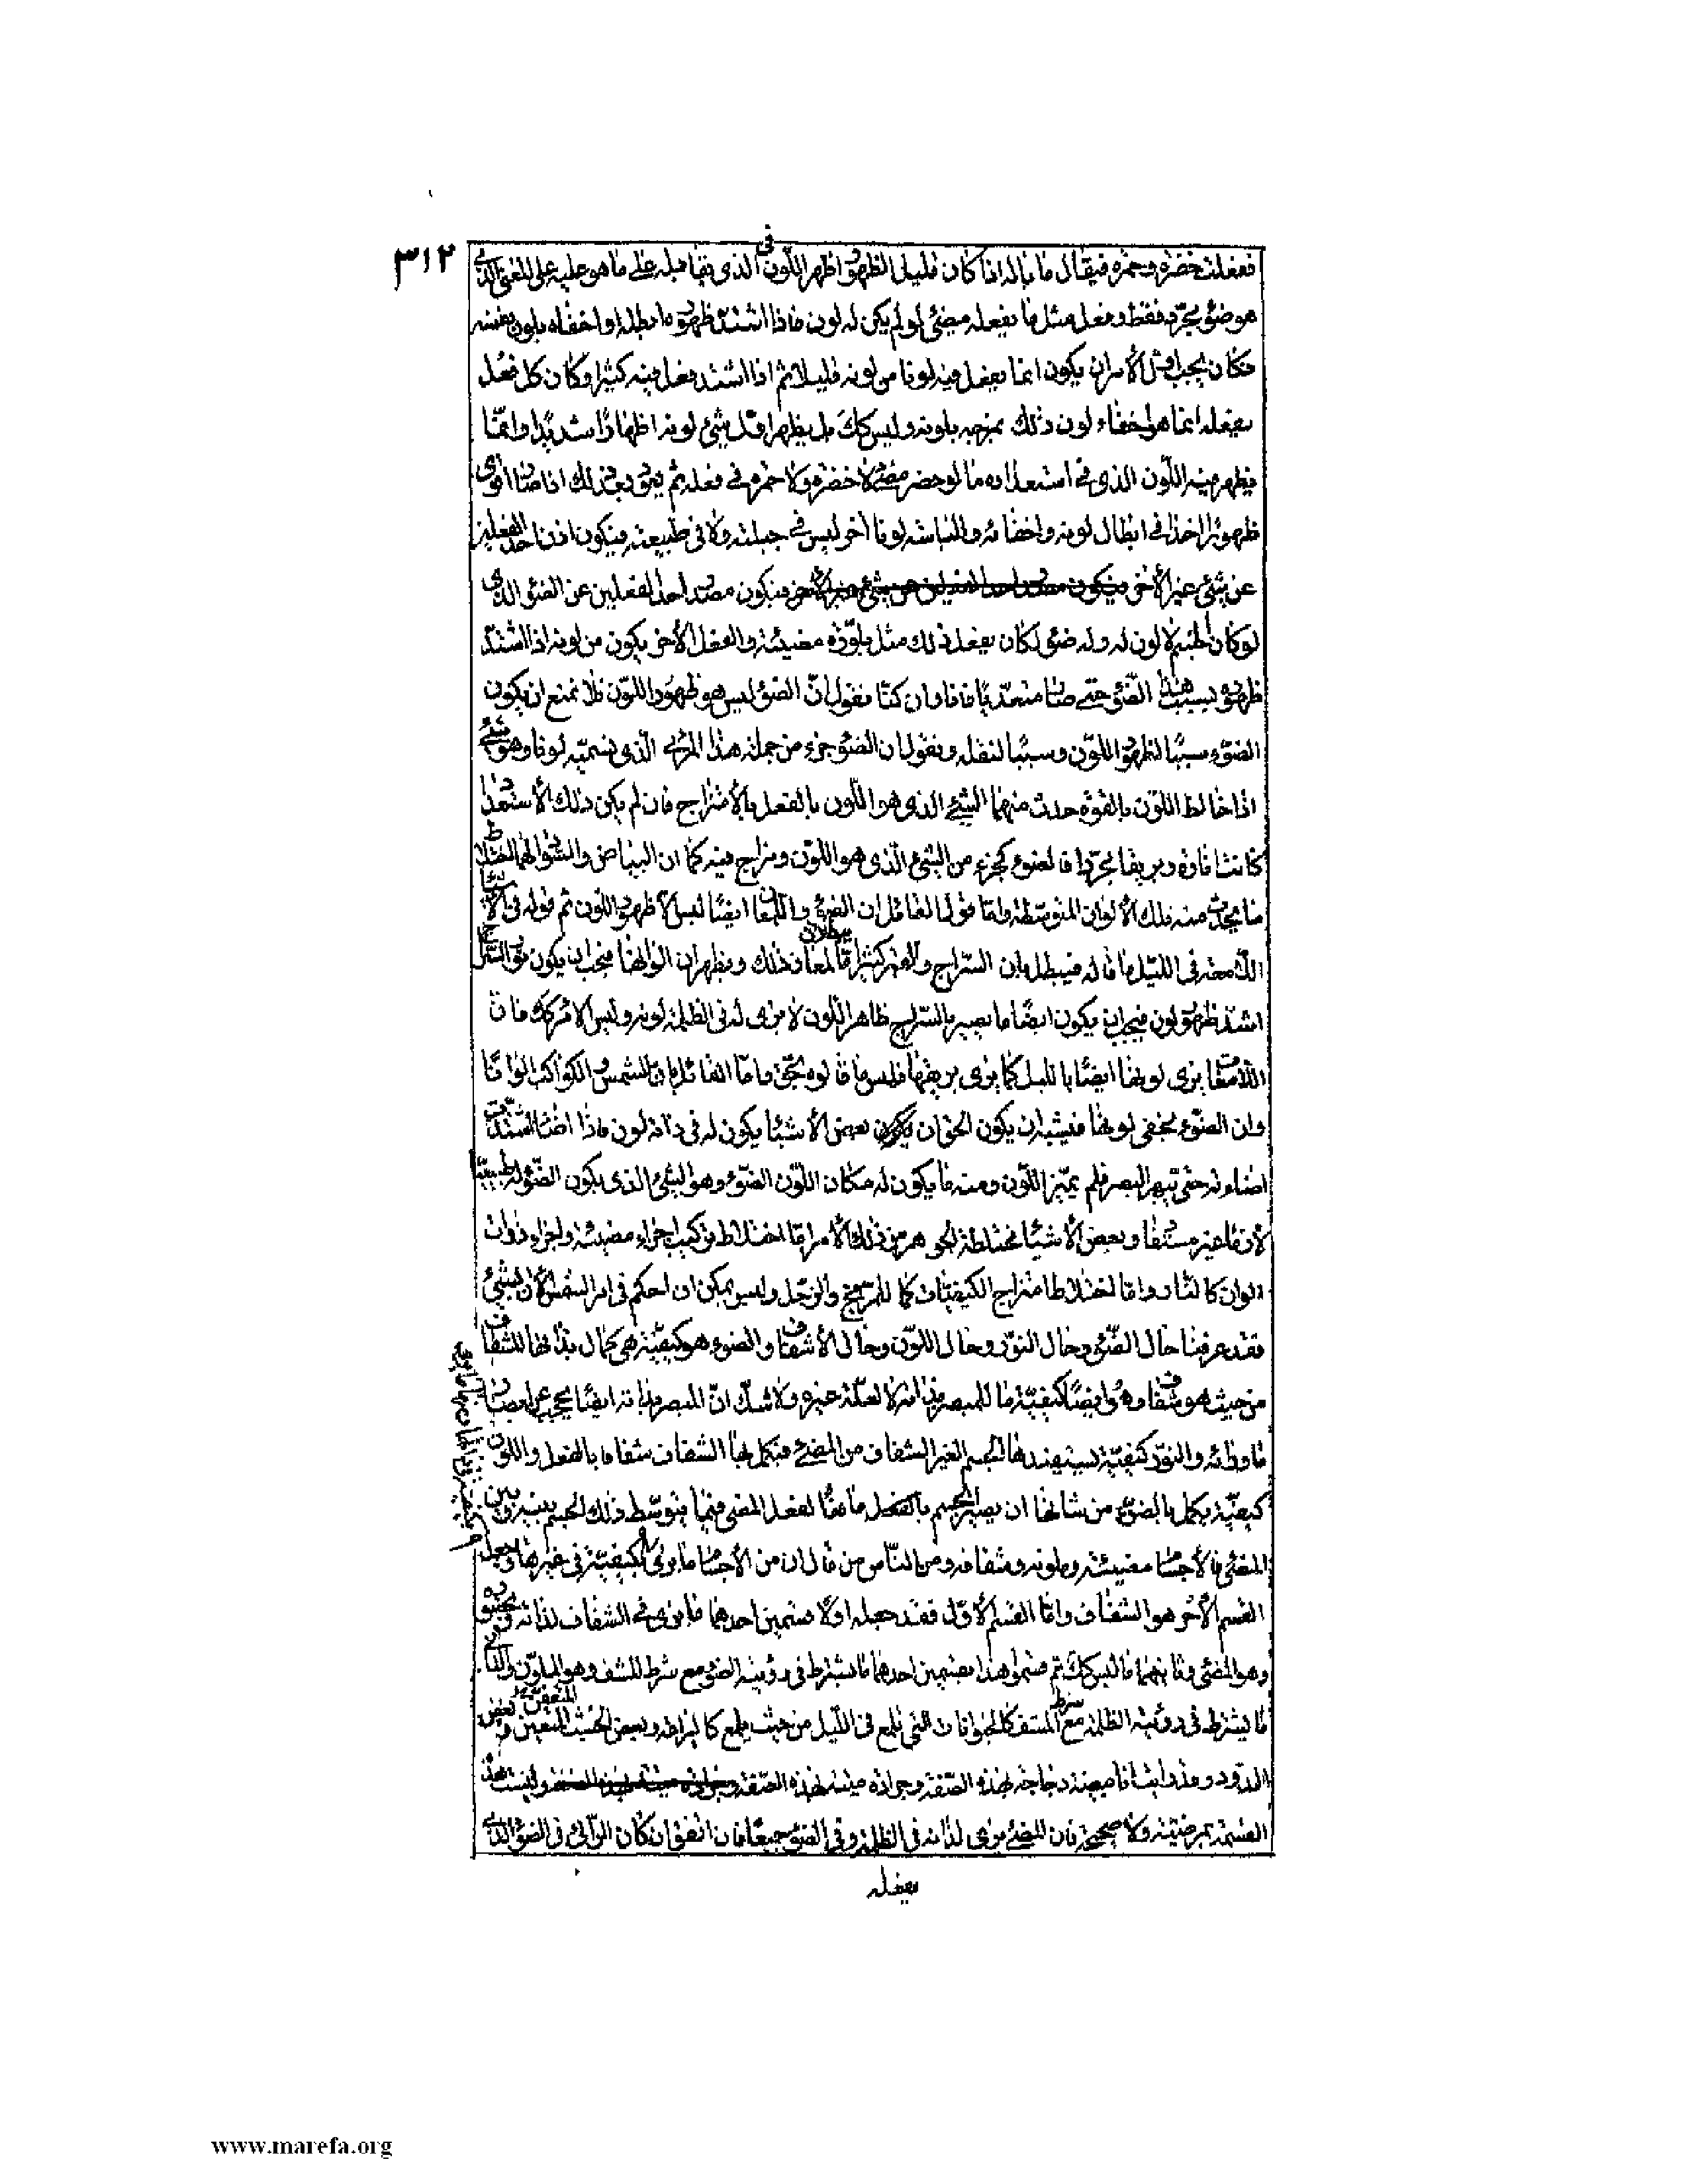 ٣١٢
ففعلت خضرة وحمرة فيقال ما باله اذا كان قليل الظهور اظهر اللون فى الذى يقابله على ما هو عليه على المعنى الذى
هو ضوئى مجرد فقط وفعل مثل ما يفعله مضئ لو لم يكن له لون فاذا اشتد ظهوره ابطله او اخفاه بلون نفسه
فكان يجب اول الأمر ان يكون انما يفعل فيه لونا من لونه قليلا ثم اذا اشتد فعل فيه كثيرا وكان كل فعل
يفعله انما هو اخفاء لون ذلك بمزجه بلونه وليس كك بل يظهر اول شئ لونه اظهارا شديدا وانما
يظهر منه اللون الذى فى استعداده ما لو حضر مضئ لا خضرة ولا حمرة فى فعله ثم يعود بعد ذلك اذا صار اقوى
ظهورا اخذ فى ابطال لونه واخفائه والباسه لونا آخر ليس فى جبلته ولا فى طبيعته فيكون اذن احد الفعلين
عن شئ غير الأخر فيكون مصدر احد الفعلين عن الضئ الذى
لو كان الجسم لا لون له وله ضوئ لكان يفعل ذلك مثل بلورة مضيئة والفعل الأخر يكون من لونه اذا اشتد
ظهوره بسبب هذا الضوئ حتى صار متعديا فانا وان كنا نقول ان الضوئ ليس هو ظهور اللون فلا نمنع ان يكون
الضوء سببا لظهور اللون وسببا لنقله ونقول ان الضوء جزء من جملة هذا المرئى الذى نسميه لونا وهو شئ
اذا خالط اللون بالقوة حدث منهما الشئ الذى هو اللون بالفعل بالأمتزاج فان لم يكن ذلك الأستعداد
كانت انارة وبريقا مجردا فالضوء كجزء من الشئ الذى هو اللون ومزاج فيه كما ان البياض والسواد لهما اختلاط
ما يحدث منه تلك الألوان المتوسطة واما قول القائل ان الضوء واللمعان ايضا ليس الا ظهور اللون ثم قوله فى الأشياء
اللامعة فى الليل ما قاله فيبطل بان السراج والقمر كثيرا ما يبطلان لمعان ذلك ويظهران الوانها فيجب ان يكون نور السراج
اشد ظهور لون فيجب ان يكون ايضا ما يصير بالسراج ظاهر اللون لا يرى لدى الظلمة لونه وليس الامر كك فان
اللامعات يرى لونها ايضا بالليل كما يرى بريقها فليس ما قالوه بحق واما القائل بان للشمس والكواكب الوانا
وان الضوء يخفى لونها فيشبه ان يكون الحق ان بعض الأشياء يكون له فى ذاته لون فاذا اضاء اشتدت
اضاءته حتى تبهر البصر فلم يميز اللون ومنه ما يكون له مكان اللون الضوء وهو الشئ الذى يكون الضوء له طبيعيا
لازما غير مستفاد وبعض الأشياء مختلطة الجوهر من ذلك الأمر اما اختلاط تركيب اجزاء مضيئة واجزاء ذوات
الوان كالنار واما اختلاط امتزاج الكيفيات كما للمريخ والزحل وليس يمكن ان احكم فى امر الشمس الأن بشئ
فقد عرفنا حال الضوء وحال النور وحال اللون وحال الأشفاف والضوء هو كيفية هى كمال بذاتها للشفاف
من حيث هو شفاف وهو ايضا كيفية ما للمبصر بذاته لا لعلة غيره ولا شك ان المبصر بذاته ايضا يحجب عن ابصار
ما ورائه والنور كيفية يستفيدها الجسم الغير الشفاف من المضئ فيكمل بها الشفاف شفافا بالفعل واللون
كيفية يكمل بالضوء من شانها ان يصير الجسم بالفعل مانعا لفعل المضئ فيما يتوسط ذلك الجسم بينه وبين
المضئ فالأجسام مضيئة وملونة وشفافة ومن الناس من قال ان من الأجسام ما يرى بكيفية فى غيرها وجعل
القسم الأخر هو الشفاف واما القسم الأول فقد جعله اولا قسمين احدهما ما يرى فى الشفاف لذاته
وهو المضئ وثانيهما ما ليس كك ثم قسموا هذا بقسمين احدهما ما يشترط فى رؤيته الضوء مع شرط المشف وهو الملون والثانى
ما يشترط فى رؤيته الظلمة مع شرط المشف كالحيوانات التى تلمع فى الليل من حيث يلمع كاليراعة وبعض الخشب المتعفن وبعض
الدود وقد رايت انا بيضة دجاجة بهذه الصفة وجرادة ميتة بهذه الصفة وليست هذه
القسمة بمرضية ولا صحيحة فان المضئ يرى لذاته فى الظلمة وفى الضوء جميعا فان اتفق ان كان الرائى فى الضوء الذى
يفعله
www.marefa.org